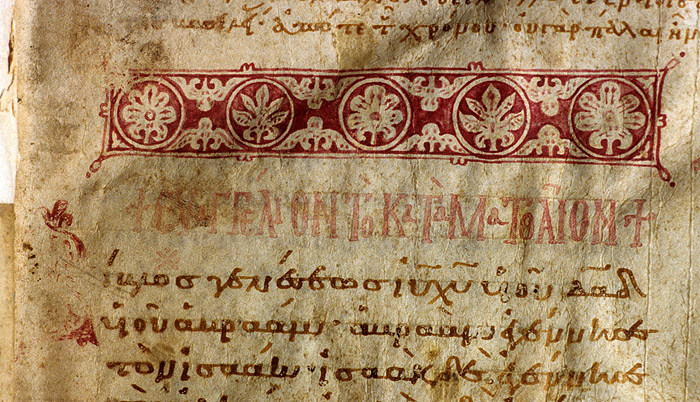 ἀπό τε τ̅ χρόνου· οὐ γὰρ πάλαι ἦν
+ ΕΥΑΓΓΕΛΙΟΝ ΤΟ ΚΑΤΑ ΜΑΤΘΑΙΟΝ +
ίβλος γενέσεως ἰ̅υ̅ χ̅υ̅ υἱοῦ δ̅α̅δ̅
υἱοῦ ἀβραάμ· ἀβραὰμ ἐγέννησε
τὸν ἰσαάκ· ἰσαὰκ δὲ ἐγέννησε